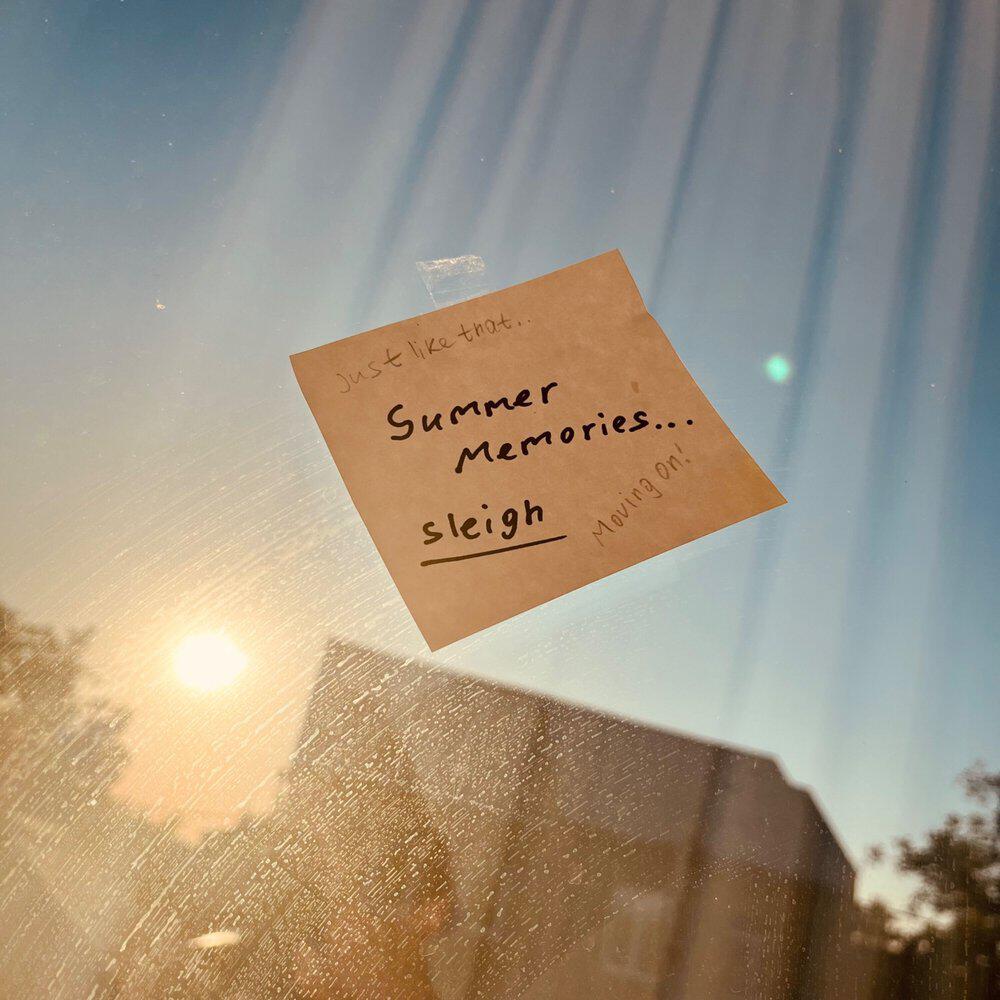 Just like that..
Summer
Memories...
sleigh
Moving on!